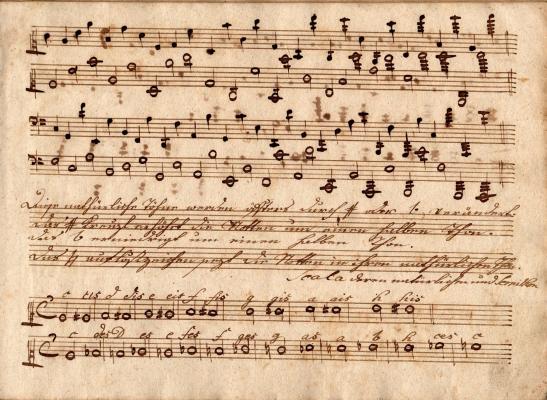 Diese natürliche Thöne werden öffters durch ♯ oder ♭, verändert.
das ♯ Kreuz erhöhet die Notten um einen halben Thon.
das ♭ erniedrigt um einen halben Thon.
das ♮ auflöszeichen sezt die Notten in ihren natürlichen Thon.
Scala deren natürlichen und
c cis d dis e eis f fis g gis a ais h his
c des D es e fes f ges g as a b h ces c